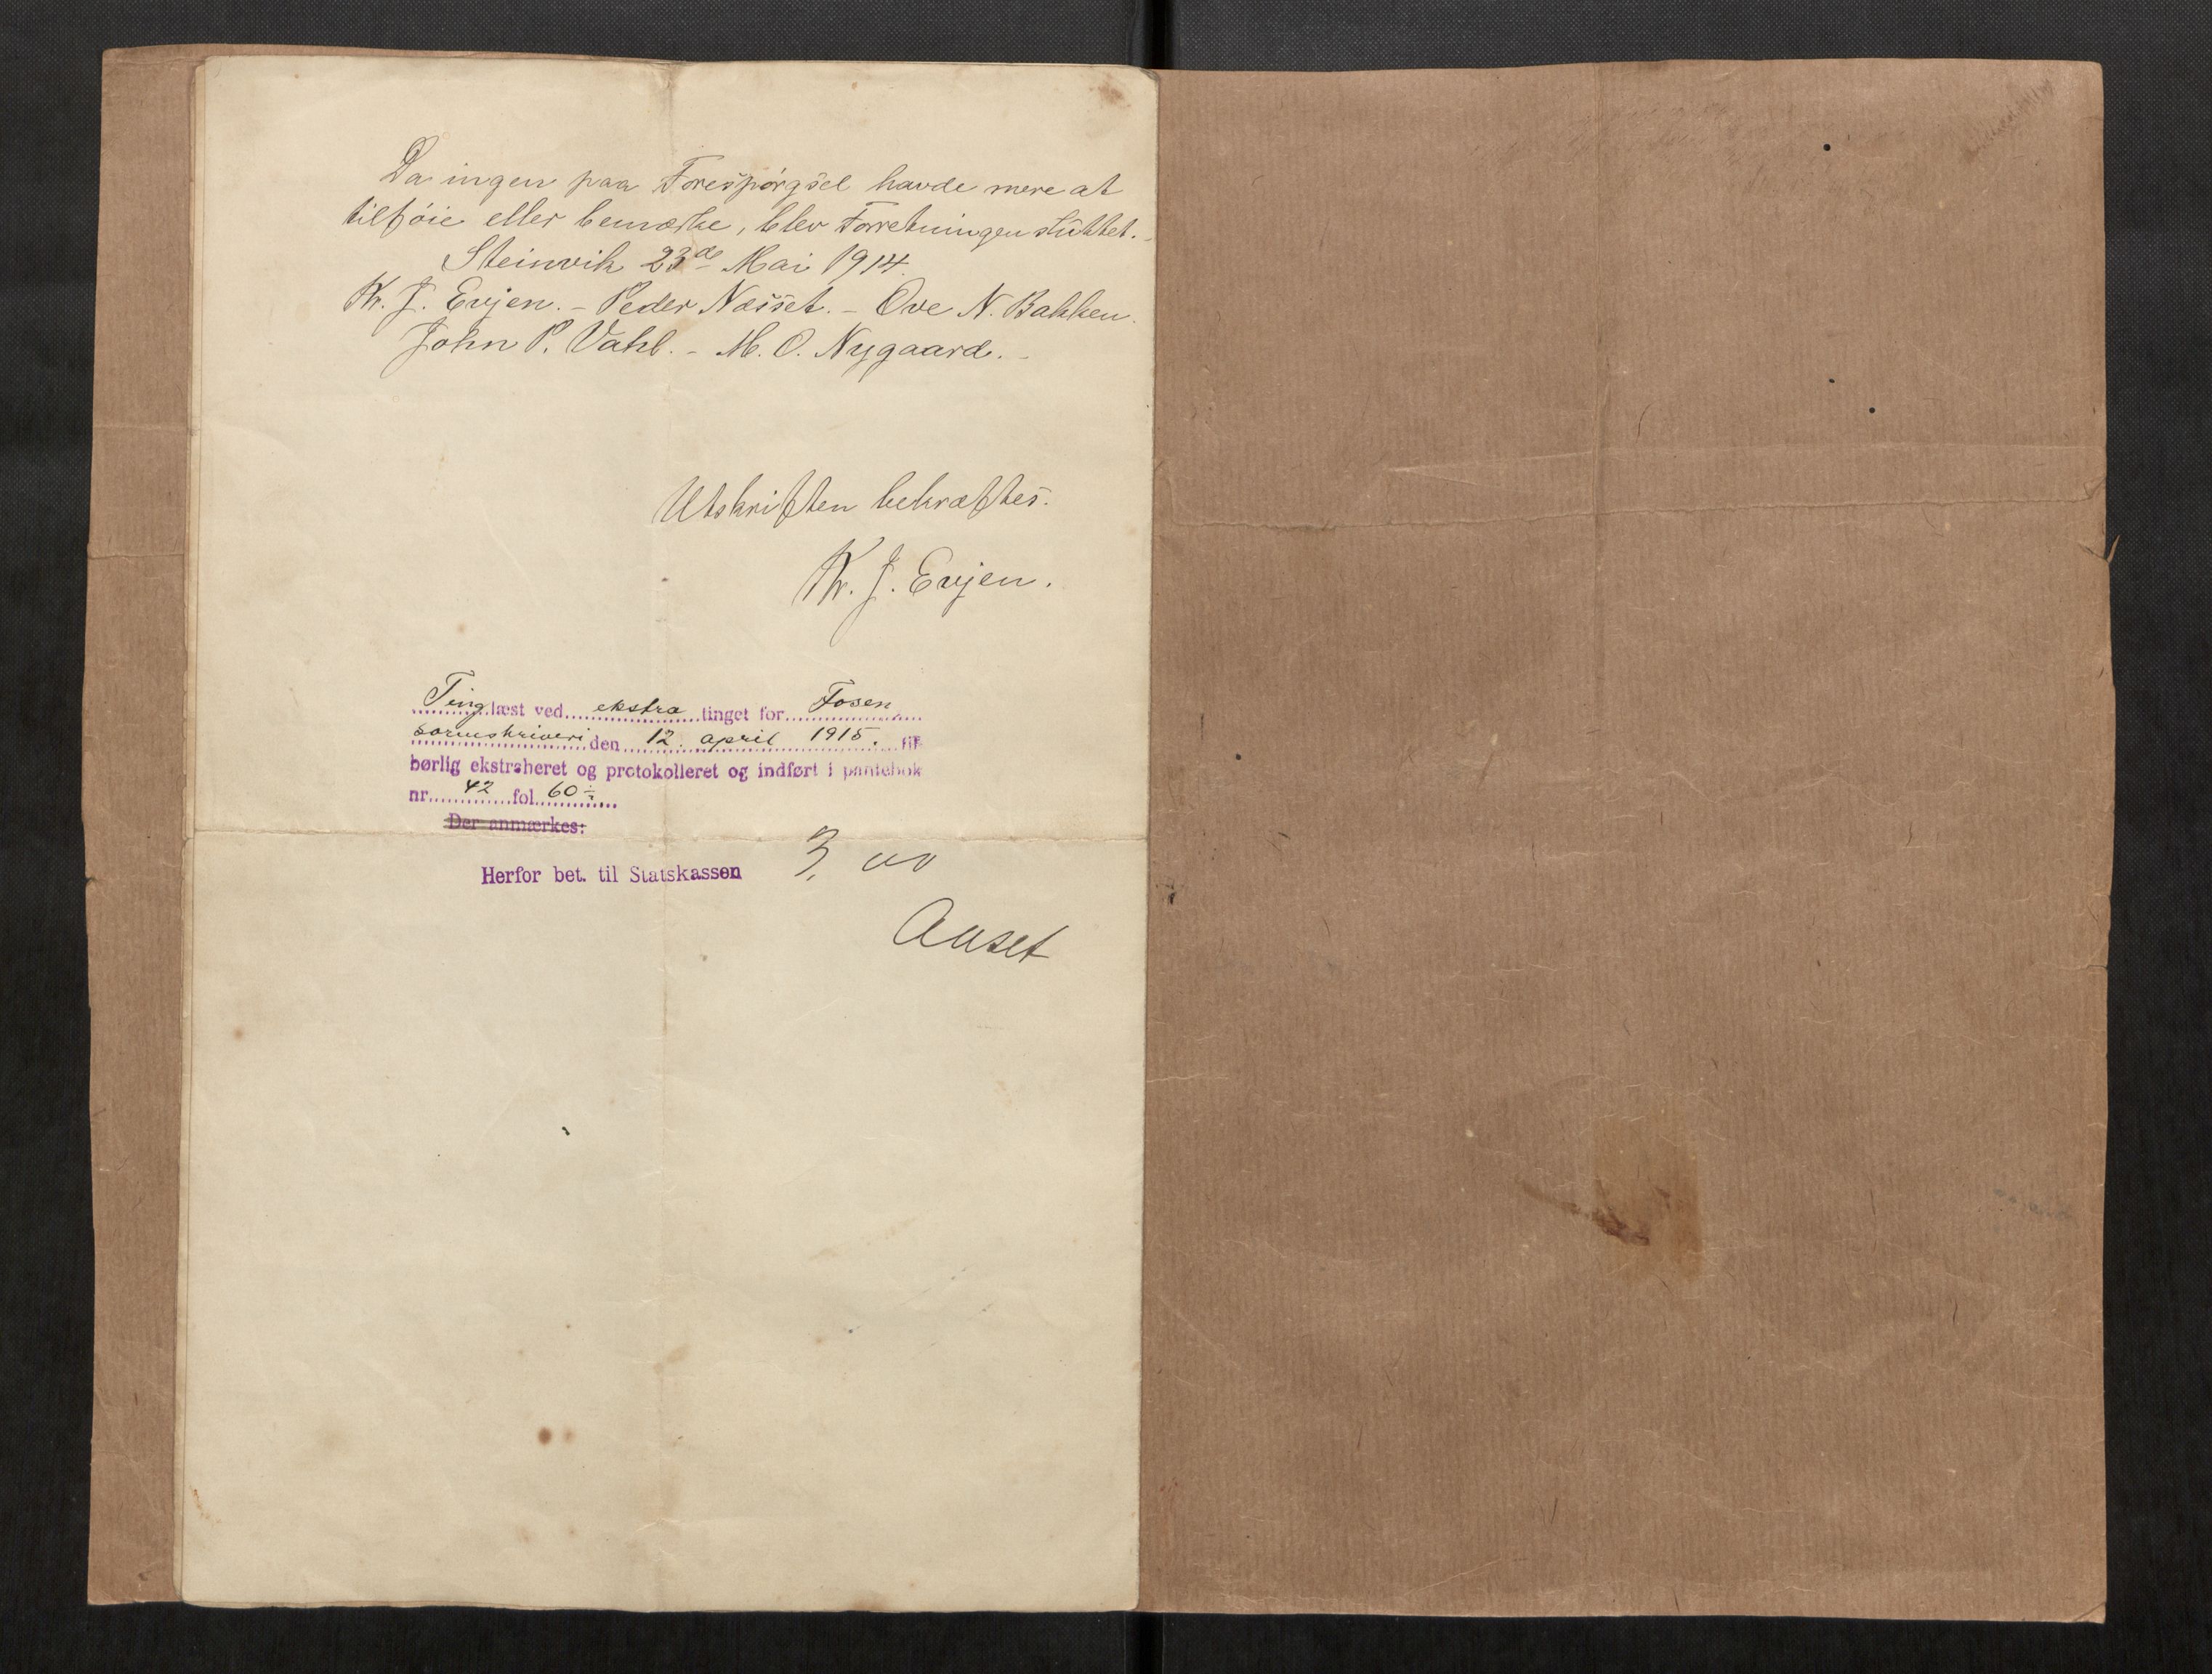 Da ingen paa Forespørgsel havde mere at
tilføie eller bemærke, blev Forretningen sluttet.-
Steinvik 23de Mai 1914.
Kr. J. Evjen. - Peder Næsset. - Ove N. Bakken.
John P. Vahl. - M. O. Nygaard. -
Utskriften bekræftes.
Kr. J. Evjen.
Tinglæst ved ekstra tinget for Fosen
sorenskriveri den 12. april 1915. til
børlig ekstraheret og protokolleret og indført i pantebok
nr. 42 fol. 60
Der anmærkes:
Herfor bet. til Statskassen 3,00